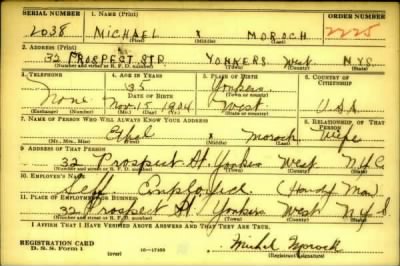 SERIAL NUMBER 1. NAME (Print) ORDER NUMBER
2038 MICHAEL X MOROCH 2225
(First) (Middle) (Last)
2. ADDRESS (Print)
32 PROSPECT STD. YONKERS West. NYS
(Number and street or R. F. D. number) (Town) (County) (State)
3. TELEPHONE 4. AGE IN YEARS 5. PLACE OF BIRTH 6. COUNTRY OF CITIZENSHIP
35 Yonkers
DATE OF BIRTH (Town or county)
None Nov. 15 1904 West. USA
(Exchange) (Number) (Mo.) (Day) (Yr.) (State or country)
7. NAME OF PERSON WHO WILL ALWAYS KNOW YOUR ADDRESS 8. RELATIONSHIP OF THAT PERSON
Ethel X Moroch Wife
(Mr., Mrs., Miss) (First) (Middle) (Last)
9. ADDRESS OF THAT PERSON
32 Prospect St. Yonkers West
(Number and street or R. F. D. number) (Town) (County) (State)
10. EMPLOYER'S NAME
Self Employed (Handy Man)
11. PLACE OF EMPLOYMENT OR BUSINESS
32 Prospect St. Yonkers West N.Y.S
(Number and street or R. F. D. number) (Town) (County) (State)
I AFFIRM THAT I HAVE VERIFIED ABOVE ANSWERS AND THAT THEY ARE TRUE.
REGISTRATION CARD
D. S. S. Form 1 (over) 16—17105
(Registrant's signature)